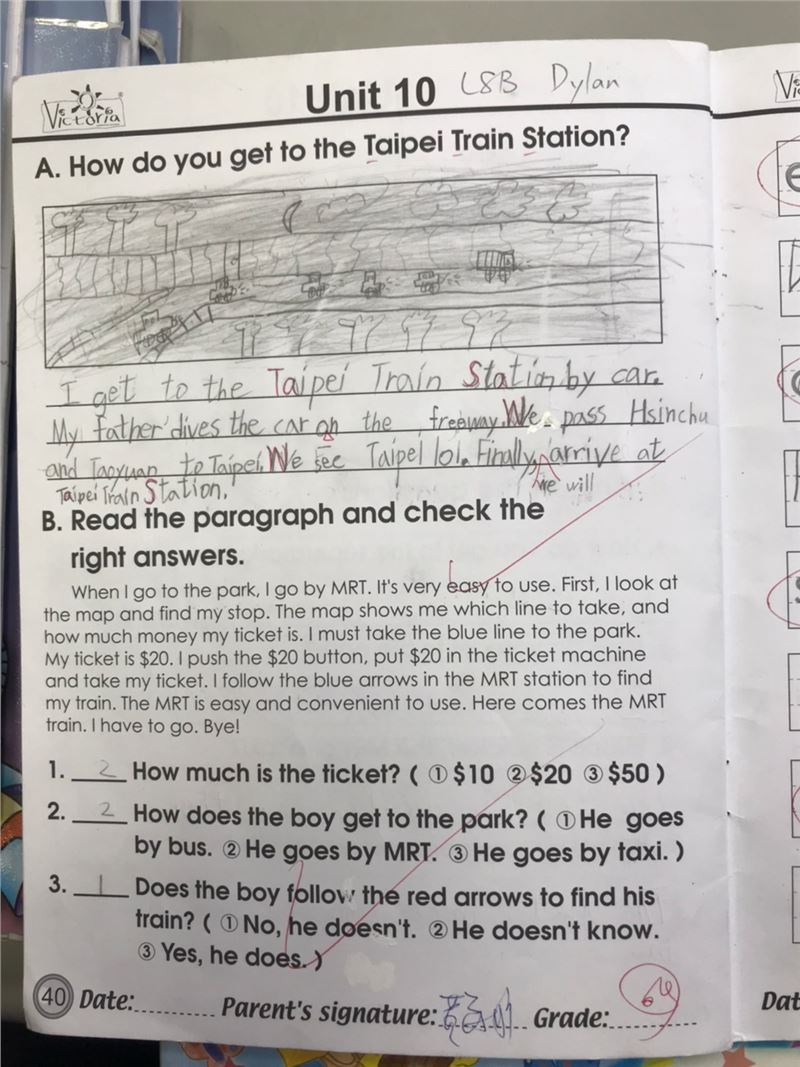 Victoria
Unit 10 L8B Dylan
A. How do you get to the Taipei Train Station?
I get to the Taipei Train Station by car.
My father dives the car on the freeway. We pass Hsinchu
and Taoyuan to Taipei. We see Taipei 101. Finally, arrive at
we will
Taipei Train Station.
B. Read the paragraph and check the
right answers.
When I go to the park, I go by MRT. It's very easy to use. First, I look at
the map and find my stop. The map shows me which line to take, and
how much money my ticket is. I must take the blue line to the park.
My ticket is $20. I push the $20 button, put $20 in the ticket machine
and take my ticket. I follow the blue arrows in the MRT station to find
my train. The MRT is easy and convenient to use. Here comes the MRT
train. I have to go. Bye!
1. 2 How much is the ticket? ( ① $10 ② $20 ③ $50 )
2. 2 How does the boy get to the park? ( ① He goes
by bus. ② He goes by MRT. ③ He goes by taxi. )
3. 1 Does the boy follow the red arrows to find his
train? ( ① No, he doesn't. ② He doesn't know.
③ Yes, he does. )
40 Date: Parent's signature: Grade:
Dat